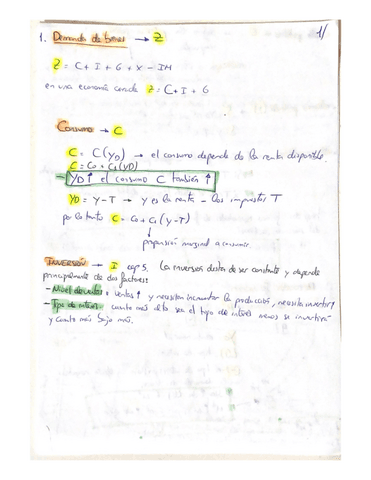 1/
1. Demanda de bienes → Z
Z = C + I + G + X - IM
en una economía cerrada Z = C + I + G
Consumo → C
C = C(YD) → el consumo depende de la renta disponible.
C = C0 + C1(YD)
YD ↑ el consumo C también ↑
YD = Y - T → Y es la renta - los impuestos T
por lo tanto C = C0 + C1(Y-T)
propensión marginal a consumir
INVERSIÓN → I cap 5. La inversion dista de ser constante y depende
principalmente de dos factores:
- Nivel de ventas: ventas ↑ y necesitan incrementar la producción, necesita invertir ↑
- Tipo de interés: cuanto más alto sea el tipo de interés menos se invertirá
y cuanto más bajo más.